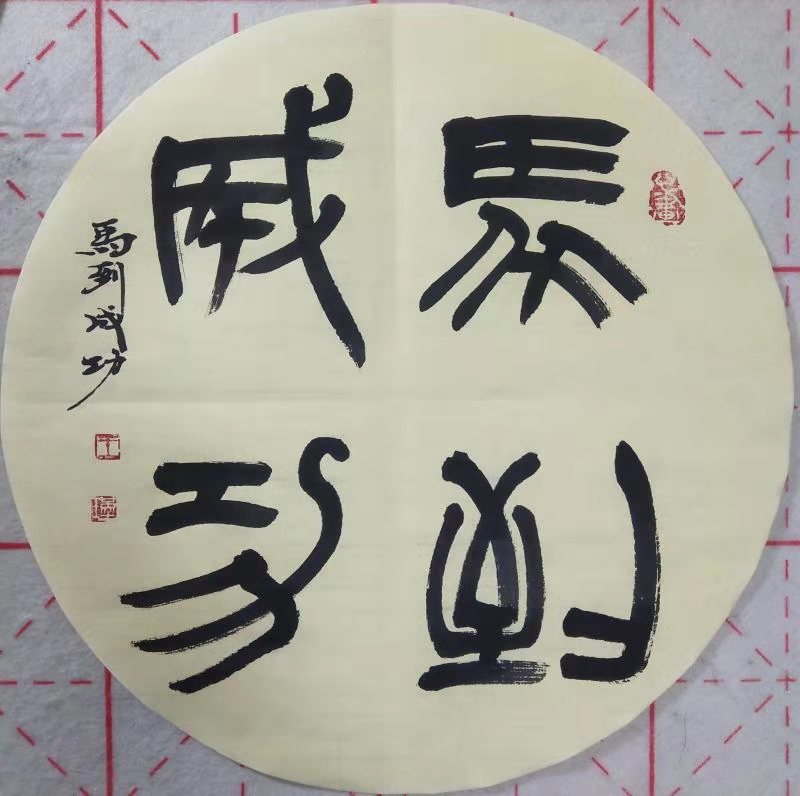 馬到
成功
馬到成功
王